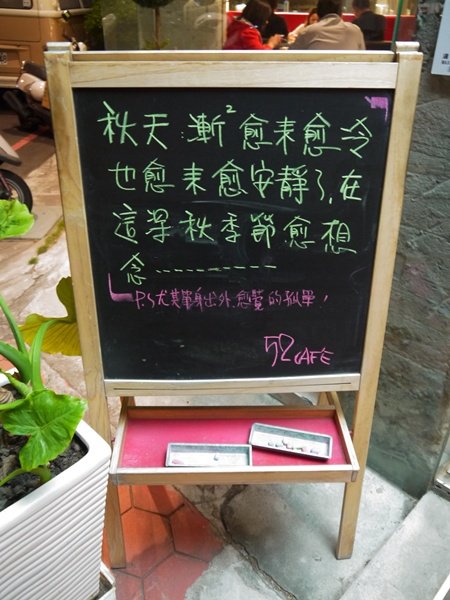 秋天.漸²愈来愈冷
也愈来愈安靜了,在
這深秋季節愈想
念----------
P.S尤其單身出外,愈覺的孤單,
52 CAFÉ